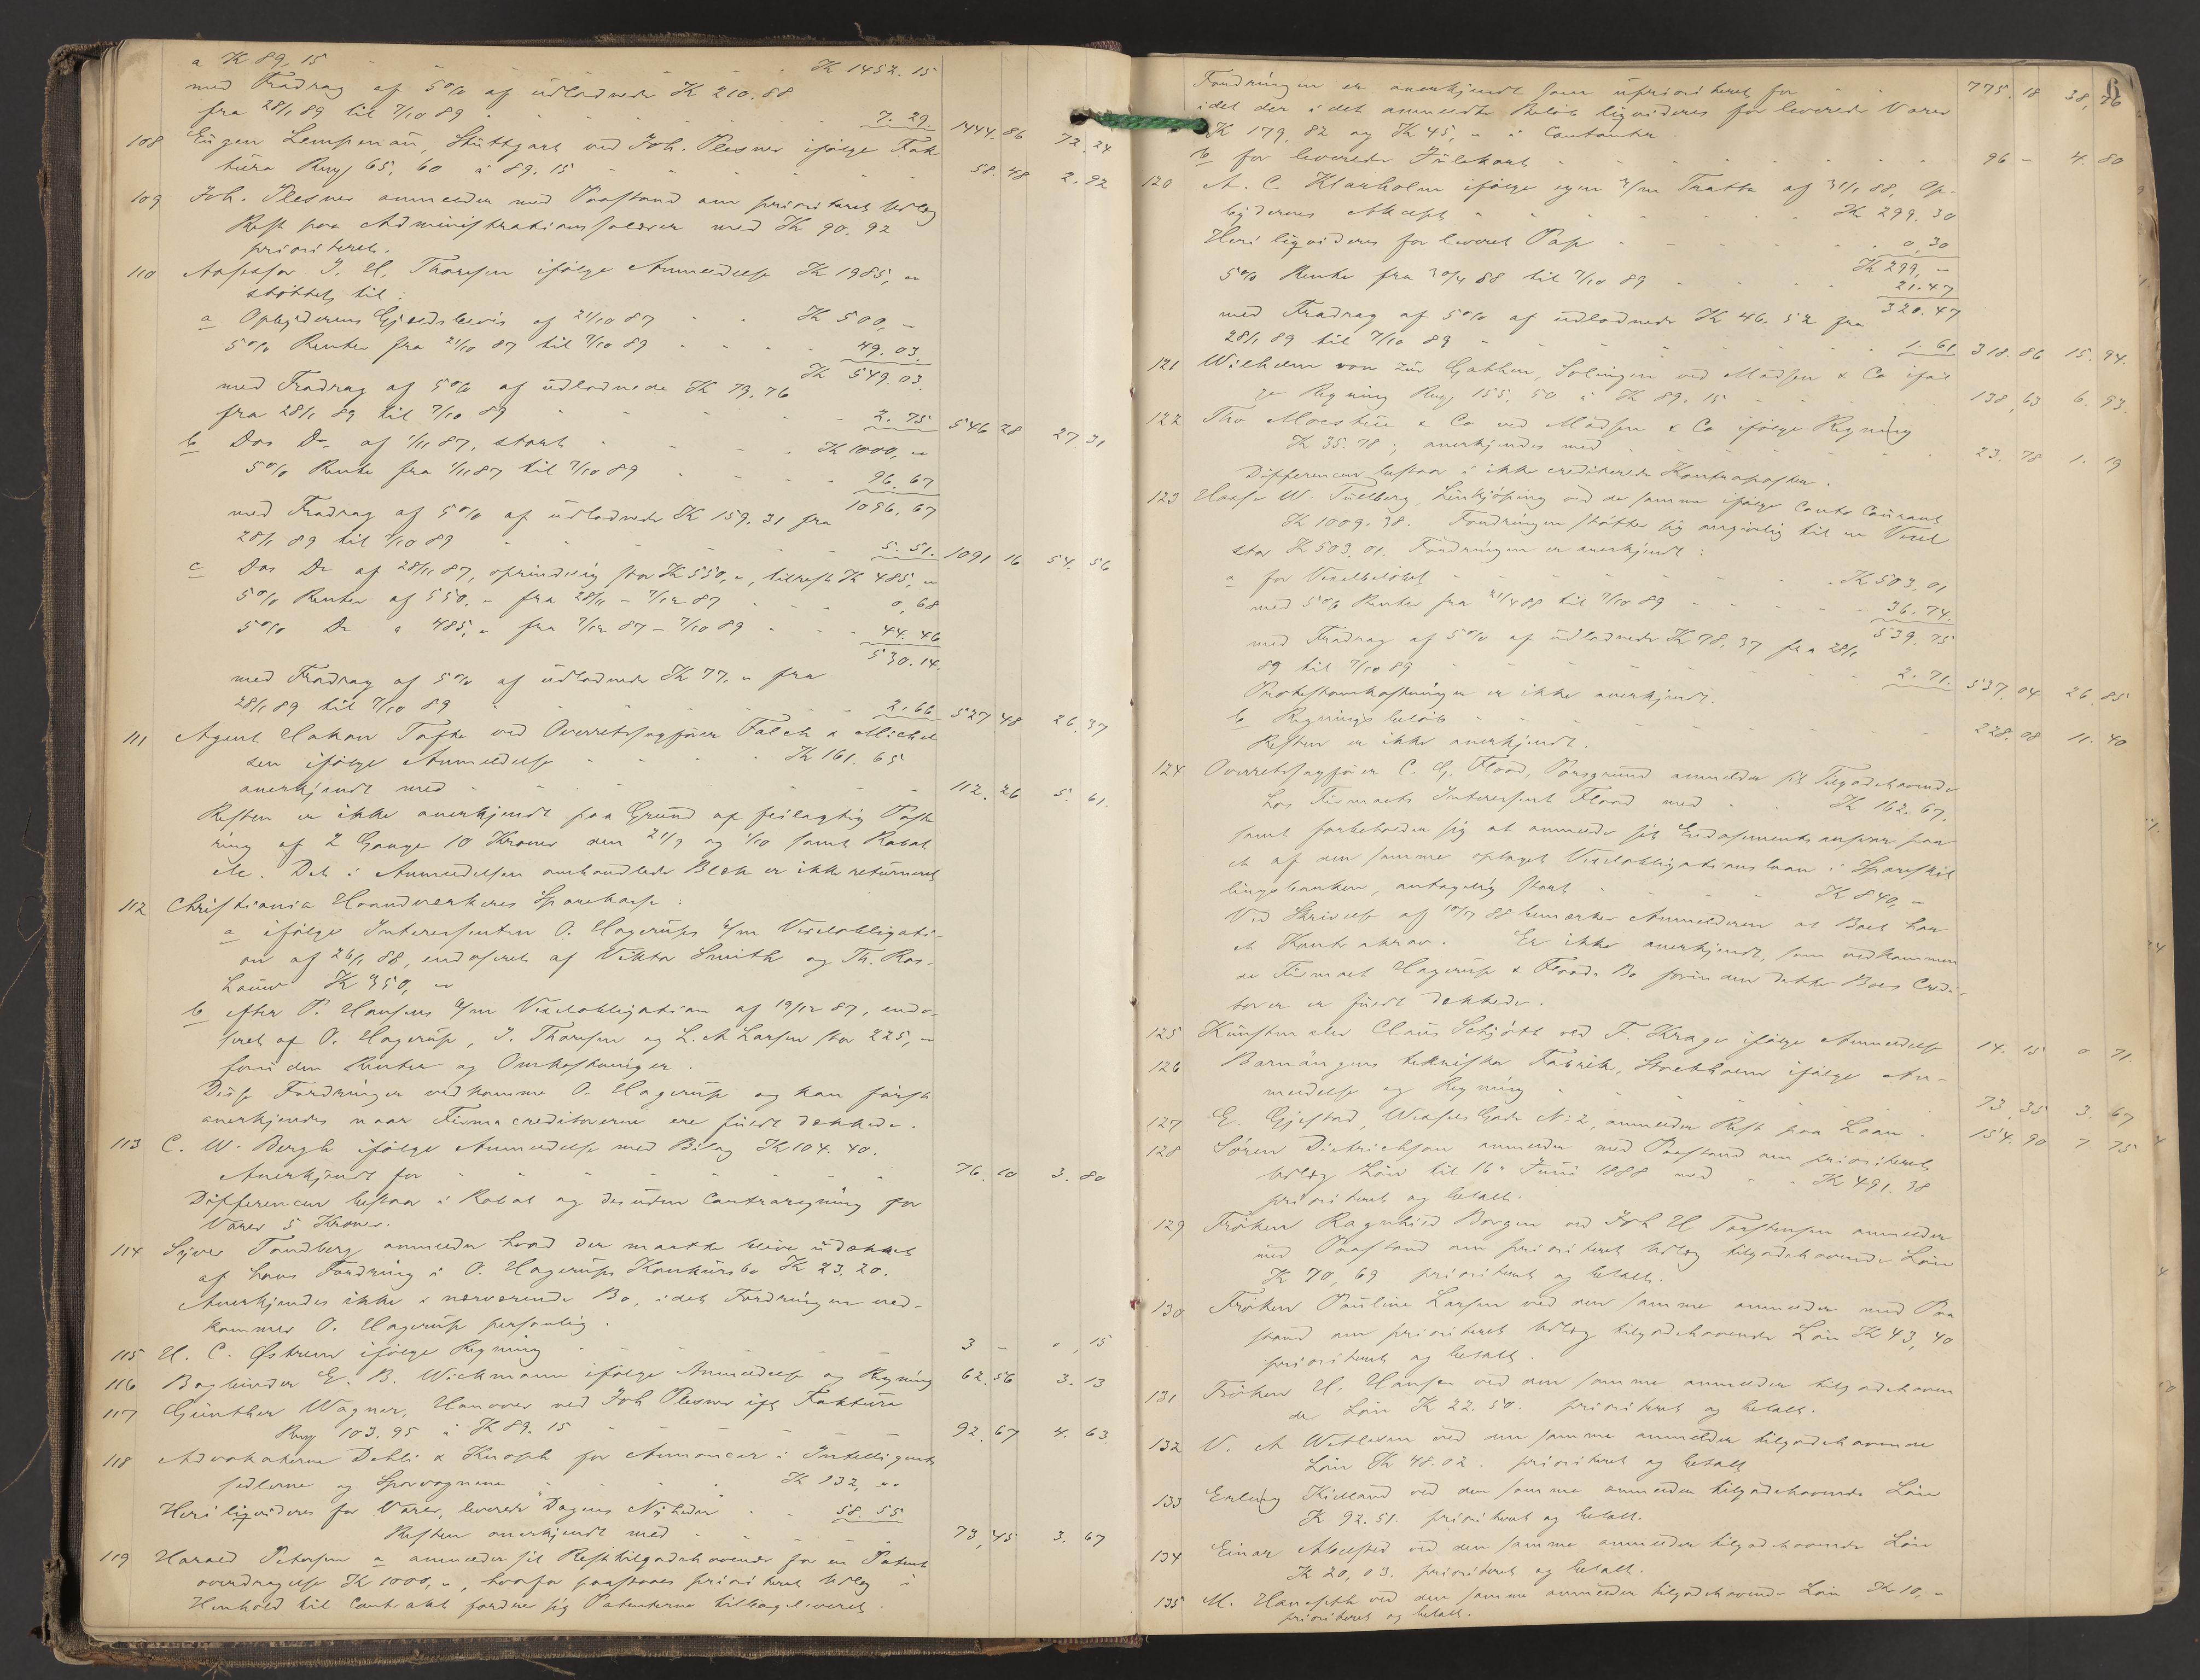 a K 89,15 - - - - - - K 1452.15
med Fradrag af 5% af udlodnede K 210.88
fra 28/1 89 til 7/10 89 - - - - - 7.29. 1444.86 72.24
108 Eugen Lempenau, Stuttgart ved Joh. Plesner ifølge Fak
tura Rmg 65,60 à 89.15 - - - - - 58.48 2.92
109 Joh. Plesner anmelder med Paastand om prioriteret Udlæg
Rest paa Administrationssalærer med K 90.92
prioriteret.
110 Assessor J. H. Thoresen ifølge Anmeldelse K 1985, "
støttet til:
a Opbyderens Gjældsbevis af 21/10 87 - - K 500, "
5% Renter fra 21/10 87 til 7/10 89 - - - - 49.03.
K 549.03.
med Fradrag af 5% af udlodnede K 79.76
fra 28/1 89 til 7/10 89 - - - - 2.75 546 28 27.31
b Dos Do af 1/11 87, stort - - - K 1000, "
5% Rente fra 1/11 87 til 7/10 89 - - - - 96.67
1096.67
med Fradrag af 5% af udlodnede K 159.31 fra
28/1 89 til 7/10 89 - - - - 5.51. 1091 16 54.56
c Dos Do af 28/11 87, oprindelig stor K 550, ", tilrest K 485, "
5% Renter af 550, " fra 28/11 - 7/12 87 - - - 0,68
5% Do a 485, " fra 7/12 87 - 7/10 89 - - - 44.46
530.14.
med Fradrag af 5% af udlodnede K 77, " fra
28/1 89 til 7/10 89 - - - - 2.66 527 48 26.37
111 Agent Hakon Tofte ved Overretssagfører Falch & Michel
sen ifølge Anmeldelse - - - K 161.65
anerkjendt med - - - - - 112.26 5.61.
Resten er ikke anerkjendt paa Grund af feilagtig Poste
ring af 2 Gange 10 Kroner den 21/9 og 1/10 samt Rabat
etc. Det i Anmeldelsen omhandlede Blæk er ikke returneret
112 Christiania Haandværkeres Sparekasse:
a ifølge Interessenten O. Hagerups 6/m Vexelobligati-
on af 26/1 88, endosseret af Viktor Smith og Th. Ros-
K 350, "
b efter P. Hansens 6/m Vexelobligation af 19/12 87, endo-
seret af O. Hagerup, J. Thoresen og L. A Larsen stor 225, "
foruden Renter og Omkostninger.
Disse Fordringer vedkomme O. Hagerup og kan først
anerkjendes naar Firmacreditorerne ere fuldt dækkede.
113 C. W. Bergh ifølge Anmeldelse med Bilag K 104.40.
Anerkjendt for - - - - - 76.10 3.80
Differencen bestaar i Rabat og desuden Contraregning for
Varer 5 Kroner.
114 Syver Tandberg anmelder hvad der maatte blive udækket
af hans Fordring i O. Hagerups Konkursbo K 23.20.
Anerkjendes ikke i nærværende Bo, idet Fordringen ved-
kommer O. Hagerup personlig.
115 H. C. Østrem ifølge Regning - - - - 3 - 0,15
116 Bogbinder E. B. Wickmann ifølge Anmeldelse og Regning 62.56 3.13
117 Günther Wagner, Hanover ved Joh Plesner ifl Faktura
Rmg 103.95 à K 89.15 - - - - 92.67 4.63.
118 Advokaterne Dehli & Knoph for Annoncer i Intelligents
sedlerne og Sporvognene - - - K 132, "
Heri liqvideres for Varer, leverede "Dagens Nyheder" - - 58.55
Resten anerkjendt med - - - - 73,45 3.67
119 Harald Petersen a anmelder sit Resttilgodehavende for en Patent
overdragelse K 1000, ", hvorfor paastaaes prioriteret Udlæg i
Henhold til Contrakt fordrer sig Patenterne tilbageleveret.
6
Fordringen er anerkjendt som uprioriteret for - - 775.18 38,76
idet der i det anmeldte Beløb liqvideres for leverede Varer
K 179.82 og K 45, " i Contanter.
b for leverede Julekort - - - - - 96 - 4.80
120 A. C Klarholm ifølge egen 3/m Tratta af 31/1 88, Op-
byderens Accept - - - - - K 299.30
Heri liqvideres for leveret Pap - - - - 0,30
K 299, "
5% Rente fra 30/4 88 til 7/10 89 - - - - 21.47
320.47
med Fradrag af 5% af udlodnede K 46.52 fra
28/1 89 til 7/10 89 - - - - 1.61 318.86 15.94.
121 Wilhelm von zur Gathen, Solingen ved Madsen & Co iføl
ge Regning Rmg 155,50 à K 89.15 - - - 138,63 6.93.
122 Tho & Co ved Madsen & Co ifølge Regning
K 35.78; anerkjendes med - - - - 23.78 1.19
Differencen bestaar i ikke crediterede Kontraposter.
123 W. Tullberg, Linkjöping ved de samme ifølge Conto Courant
K 1009.38. Fordringen støtter sig angivelig til en Vexel
stor K 503.01. Fordringen er anerkjendt:
a for Vexelbeløbet - - - - K 503,01
med 5% Renter fra 21/4 88 til 7/10 89 - - - - 36.74.
539.75
med Fradrag af 5% af udlodnede K 78.37 fra 28/1
89 til 7/10 89 - - - - 2.71. 537.04 26.85
Protestomkostninger er ikke anerkjendt.
b Regnings beløb - - - - - 228.08 11.40
Resten er ikke anerkjendt.
124 Overretssagfører C. G. Flood, Porsgrund anmelder sit Tilgodehavende
hos Firmaets Interessent Flood med - - K 162.67.
samt forbeholder sig at anmelde sit Endossementsansvar paa
et af den samme optaget Vexelobligationslaan i Spareskil
lingsbanken, antagelig stort - - - - K 840, "
Ved Skrivelse af 10/7 88 bemærker Anmelderen at Boet har
et Kontrakrav. Er ikke anerkjendt, som vedkommen
de Firmaet Hagerup & Floods Bo forinden dette Boes Credi-
torer er fuldt dækkede.
125 Kunstmaler Claus Schjött ved F. Krage ifølge Anmeldelse 14.15 0 71.
126 Barnängens tekniska Fabrik, Stockholm ifølge An-
meldelse og Regning - - - - 73.35 3.67
127 E. Gjestad, Wessels Gade N: 2, anmelder Rest paa Laan - 154.90 7 75
128 Søren Dietrichson anmelder med Paastand om prioriteret
Udlæg Løn til 16. Juni 1888 med - - K 491.38
prioriteret og betalt.
129 Frøken Ragnhild Borgen ved Joh H Torstensen anmelder
med Paastand om prioriteret Udlæg tilgodehavende Løn
K 70,69 prioriteret og betalt.
130 Frøken Pauline Larsen ved den samme anmelder med Paa
stand om prioriteret Udlæg tilgodehavende Løn K 43,40
prioriteret og betalt.
131 Frøken H. Hansen ved den samme anmelder tilgodehaven
de Løn K 22.50. prioriteret og betalt.
132 V. A Wetlesen ved den samme anmelder tilgodehavende
Løn K 48.02. prioriteret og betalt
133 Erling Kielland ved den samme anmelder tilgodehavende Løn
K 92.51. prioriteret og betalt.
134 Einar Abelsted ved den samme anmelder tilgodehavende Løn
K 20,03. prioriteret og betalt.
135 M. ved den samme anmelder tilgodehavende Løn K 10, "
prioriteret og betalt.